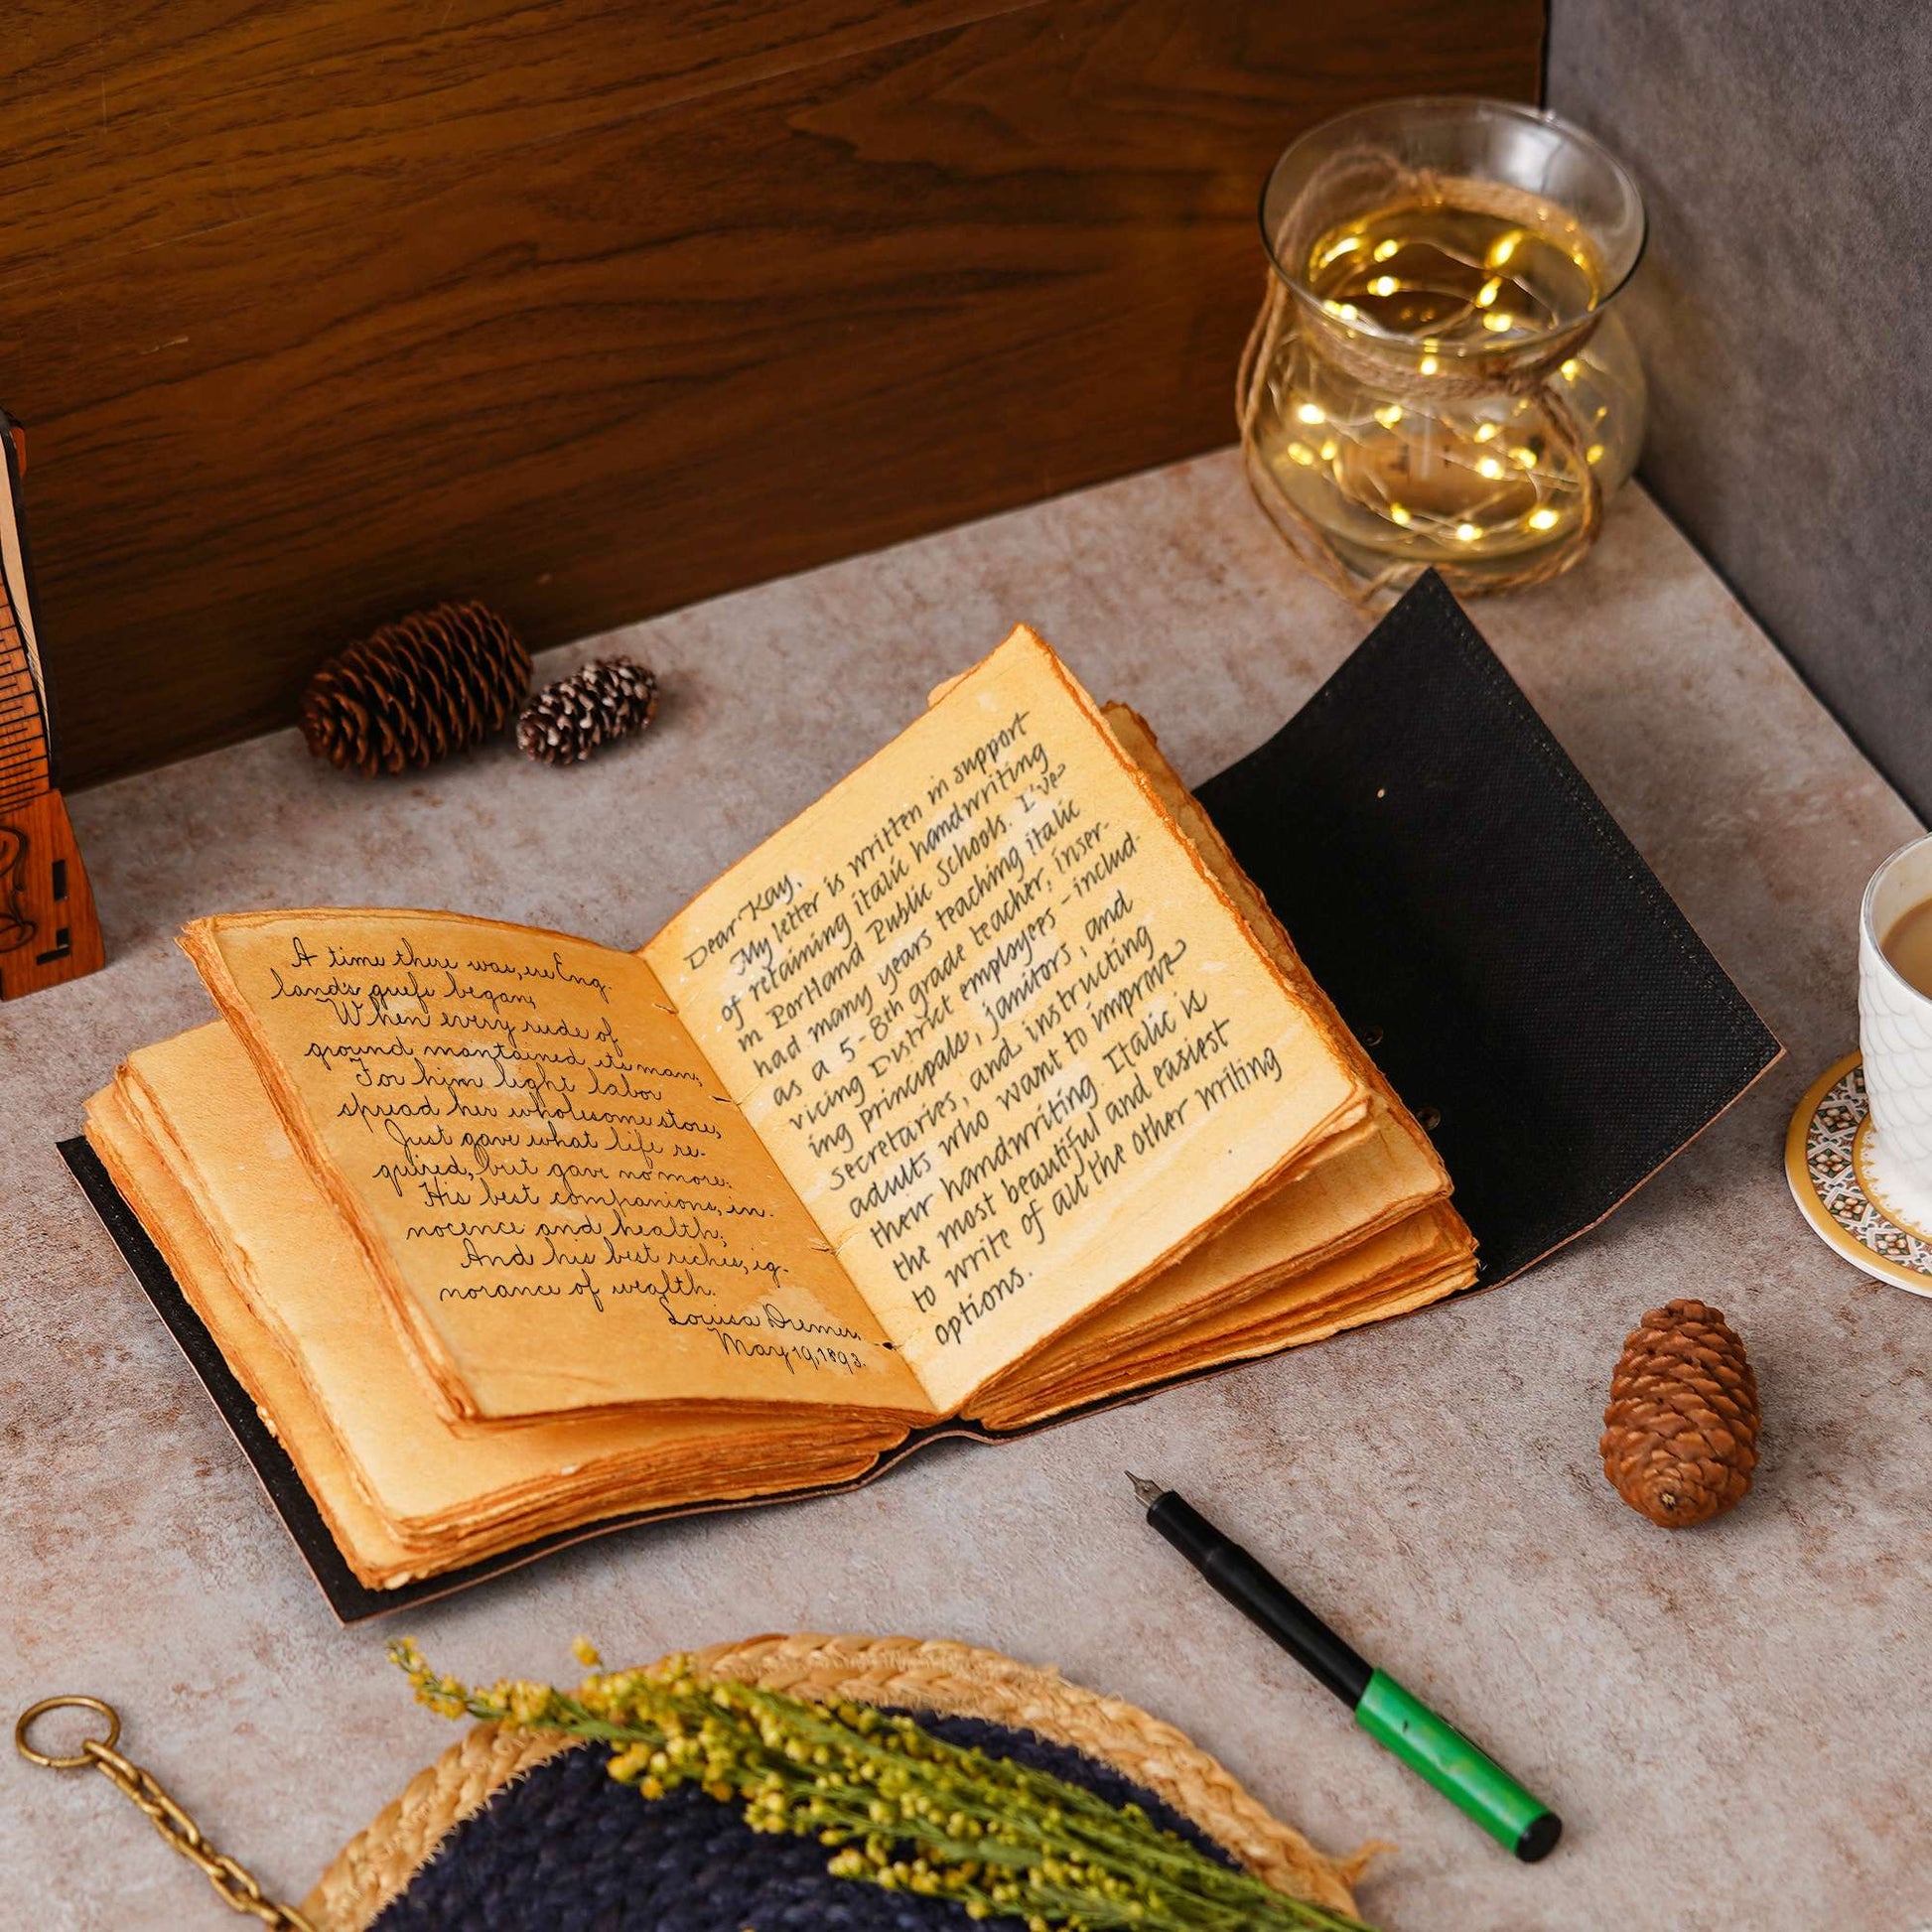 A time there was, ere Eng-
land's griefs began,
When every rude of
ground mantained its man;
For him light labor
spread her wholesome store,
Just gave what life re-
quired, but gave no more;
His best companions, in-
nocence and health;
And his best riches, ig-
norance of wealth.
Louisa
May 19, 1893.
Dear Kay,
My letter is written in support
of retaining italic handwriting
in Portland Public Schools. I've
had many years teaching italic
as a 5-8th grade teacher, inser-
vicing District employees - includ-
ing principals, janitors, and
secretaries, and instructing
adults who want to improve
their handwriting. Italic is
the most beautiful and easiest
to write of all the other writing
options.